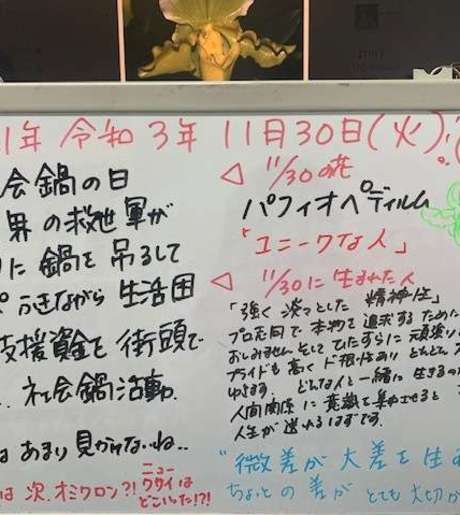 1年 令和3年 11月30日(火)
会鍋の日
界の救世軍が
に鍋を吊るして
ふきながら生活困
支援資金を街頭で
社会鍋活動.
はあまり見かけないね..
は次.オミクロン?!
ニュー
クサイは
どこいった!?!
◁ 11/30の花
パフィオペディルム
「ユニークな人」
◁ 11/30に生まれた人
「強く淡々とした 精神性」
プロ志向で本物を追求するために
おしみません。そしてひたすらに頑張り
プライドも高くド根性あり どんどん
ゆきます どんな人と一緒に生きるのか
人間関係に意識を集中させると
人生が送れるはずです.
"微差が大差を生
ちょっとの差が とても大切か